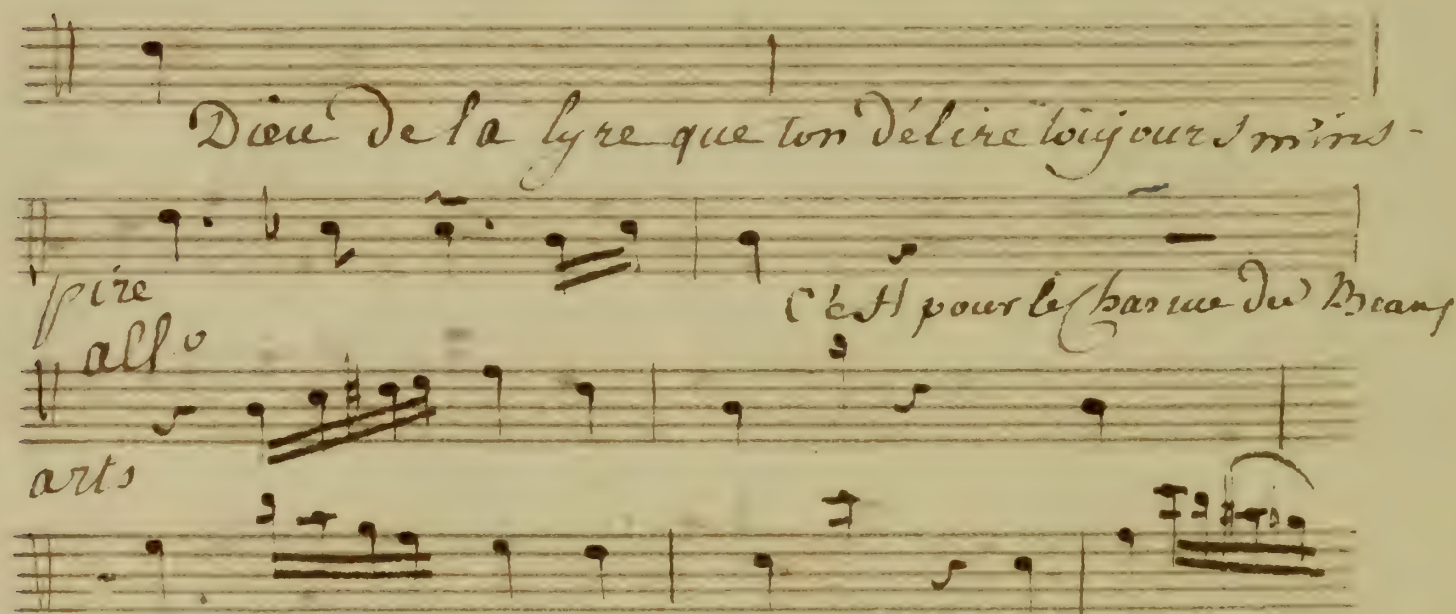 Dieu de la lyre que ton délire toujours m'ins-
pire
C'est pour le Charme du Beaux
all.o
arts